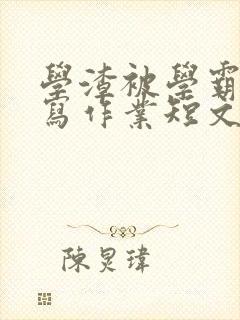 學渣被學霸
寫作業短文
陳炅瑋